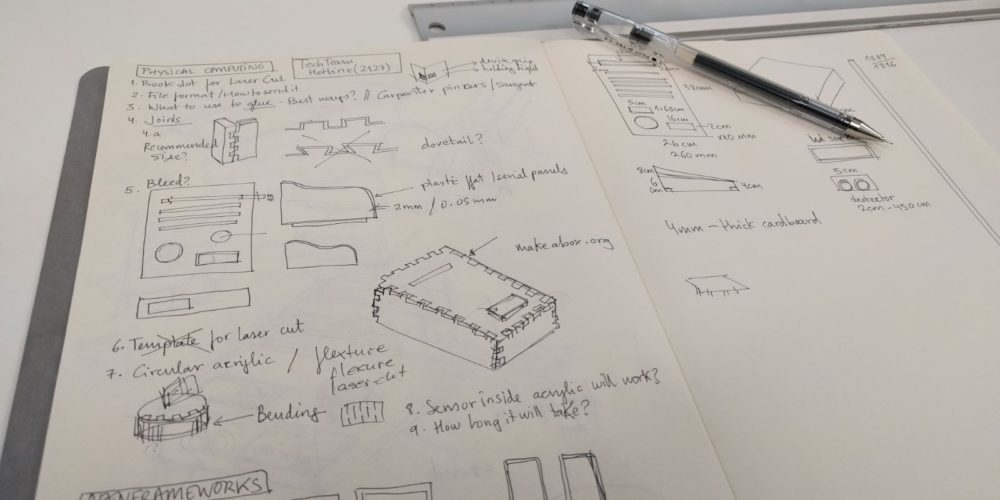 PHYSICAL COMPUTING
TechTeam
Hotline (2127)
device grip
holding tight
1. Book slot for Laser Cut
2. File format / How to send it
3. What to use to glue. Best ways? // Carpenter pinkers /
4. Joids
4.a
Recommended
size?
dovetail?
5. Bleed?
plastic flat / serial panels
2mm / 0.05mm
makeabox.org
6. Template for laser cut
7. Circular acrylic / flexture
flexure
laser cut
Bending
8. Sensor inside acrylic will work?
9. How long it will take?
FRAMEWORKS
38cm
5cm
1.65cm
16cm
2cm
26 cm
260mm
8cm
6
cm
4cm
5cm
detector
2cm - 450cm
4mm - thick cardboard